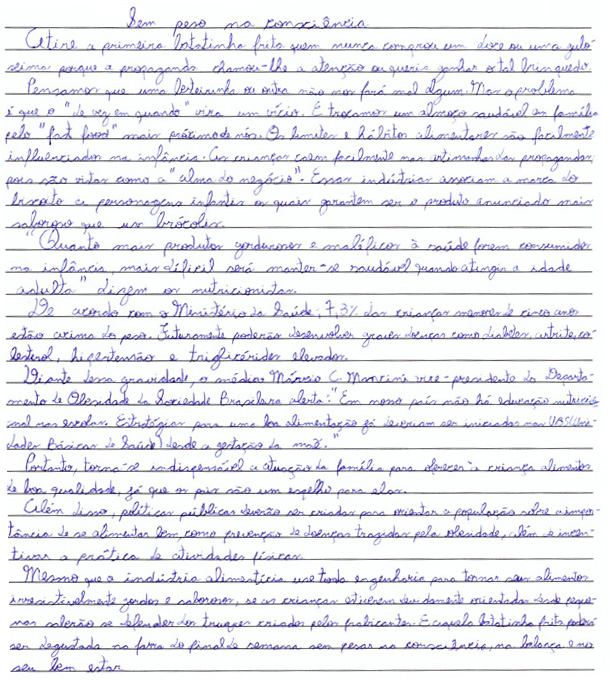 Sem peso na consciência
Atire a primeira batatinha frita quem nunca comprou um doce ou uma gulo-
seima porque a propaganda chamou-lhe a atenção ou queria ganhar o tal brinquedo.
Pensamos que uma besteirinha ou outra não nos fará mal algum. Mas o problema
é que o "de vez em quando" vira um vício. E trocamos um almoço saudável em família
pelo "fast food" mais próximo de nós. Os limites e hábitos alimentares são facilmente
influenciados na infância. As crianças caem facilmente nas artimanhas das propagandas,
pois são vistas como a "alma do negócio". Essas indústrias associam a marca do
biscoito a personagens infantis os quais garantem ser o produto anunciado mais
saboroso que um brócolis.
"Quanto mais produtos gordurosos e maléficos à saúde forem consumidos
na infância, mais difícil será manter-se saudável quando atingir a idade
adulta" dizem os nutricionistas.
De acordo com o Ministério da Saúde, 7,3% das crianças menores de cinco anos
estão acima do peso. Futuramente poderão desenvolver graves doenças como diabetes, artrite, co-
lesterol, hipertensão e triglicérides elevados.
Diante dessa gravidade, o médico Márcio C. Mancini vice-presidente do Departa-
mento de Obesidade da Sociedade Brasileira alerta: "Em nosso país não há educação nutricio-
nal nas escolas. Estratégias para uma boa alimentação já deveriam ser iniciadas nas UBS(Uni-
dades Básicas de Saúde) desde a gestação da mãe."
Portanto, torna-se indispensável a atuação da família para oferecer à criança alimentos
de boa qualidade, já que os pais são um espelho para elas.
Além disso, políticas públicas deverão ser criadas para orientar a população sobre a impor-
tância de se alimentar bem, como prevenção de doenças trazidas pela obesidade, além de incen-
tivar a prática de atividades físicas.
Mesmo que a indústria alimentícia use toda engenharia para tornar seus alimentos
irresistivelmente gordos e saborosos, se as crianças estiverem devidamente orientadas desde peque-
nas saberão se defender dos truques criados pelos fabricantes. E aquela batatinha frita poderá
ser degustada na farra do final de semana sem pesar na consciência, na balança e no
seu bem estar.